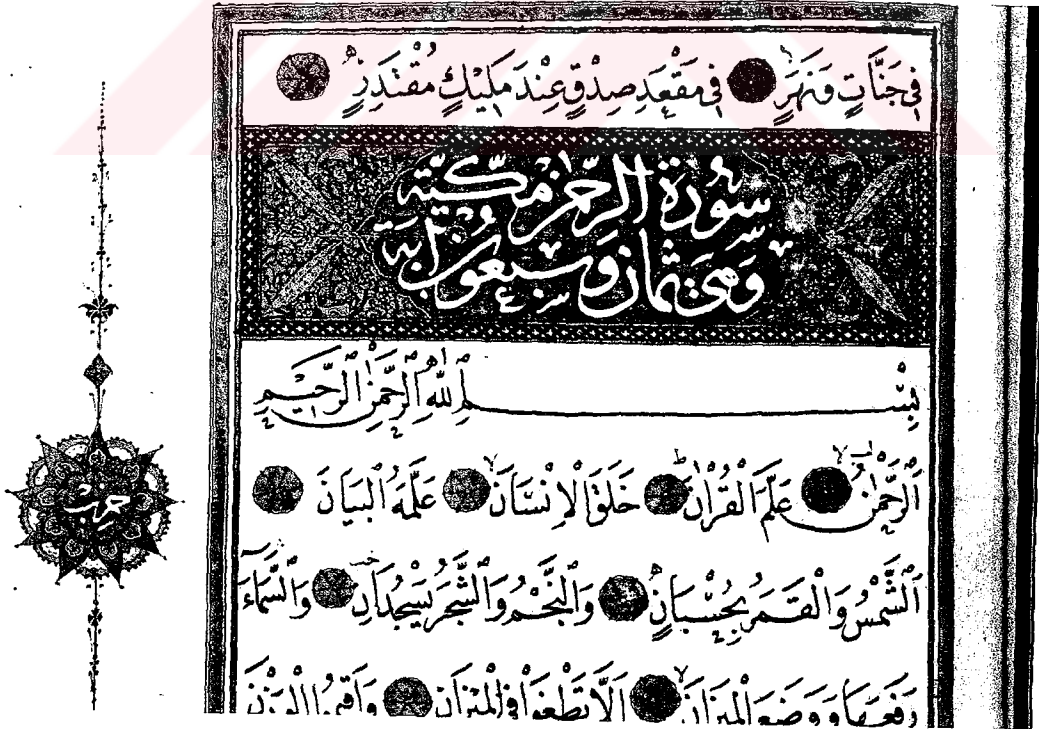 فِي جَنَّاتٍ وَنَهَرٍ فِي مَقْعَدِ صِدْقٍ عِنْدَ مَلِيكٍ مُقْتَدِرٍ
سُورَةُ الرَّحْمٰنِ مَكِّيَّة
وَهِيَ ثَمَانٍ وَسَبْعُونَ آيَة
بِسْمِ اللّٰهِ الرَّحْمٰنِ الرَّحِيمِ
اَلرَّحْمٰنُ عَلَّمَ الْقُرْاٰنَ خَلَقَ الْاِنْسَانَ عَلَّمَهُ الْبَيَانَ
اَلشَّمْسُ وَالْقَمَرُ بِحُسْبَانٍ وَالنَّجْمُ وَالشَّجَرُ يَسْجُدَانِ وَالسَّمَاءَ
رَفَعَهَا وَوَضَعَ الْمِيزَانَ اَلَّا تَطْغَوْا فِي الْمِيزَانِ وَاَقِيمُوا الْوَزْنَ
حزب